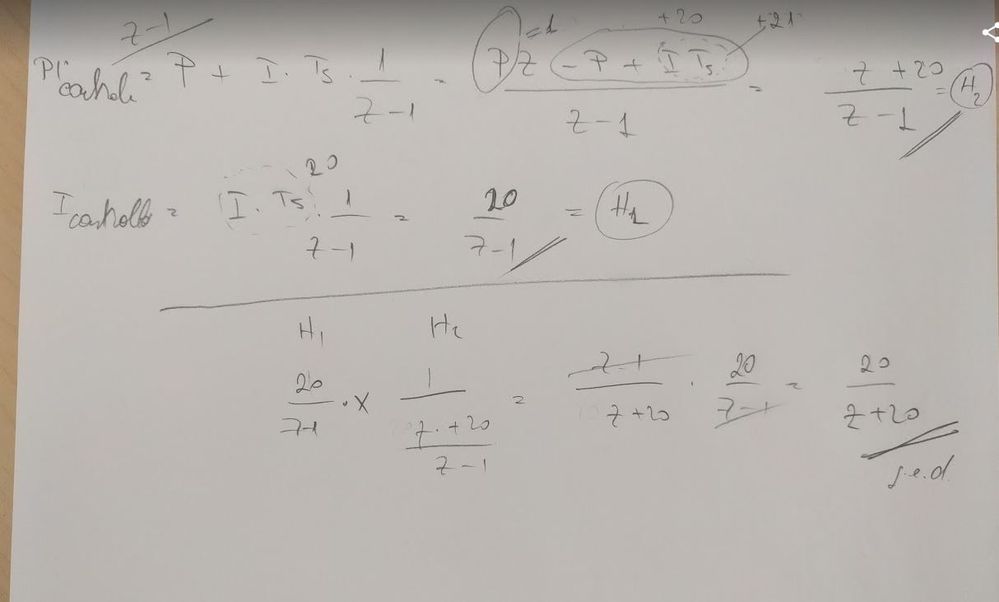 z-1
PI controle = P + I · Ts · 1/(z-1) = (Pz - P + I Ts)/(z-1) = (z+20)/(z-1) = H2
=1 +20 +21
I controllo = I · Ts · 1/(z-1) = 20/(z-1) = H1
20
H1 H2
20/(z-1) · x 1/((z·+20)/(z-1)) = (z-1)/(z+20) · 20/(z-1) = 20/(z+20)